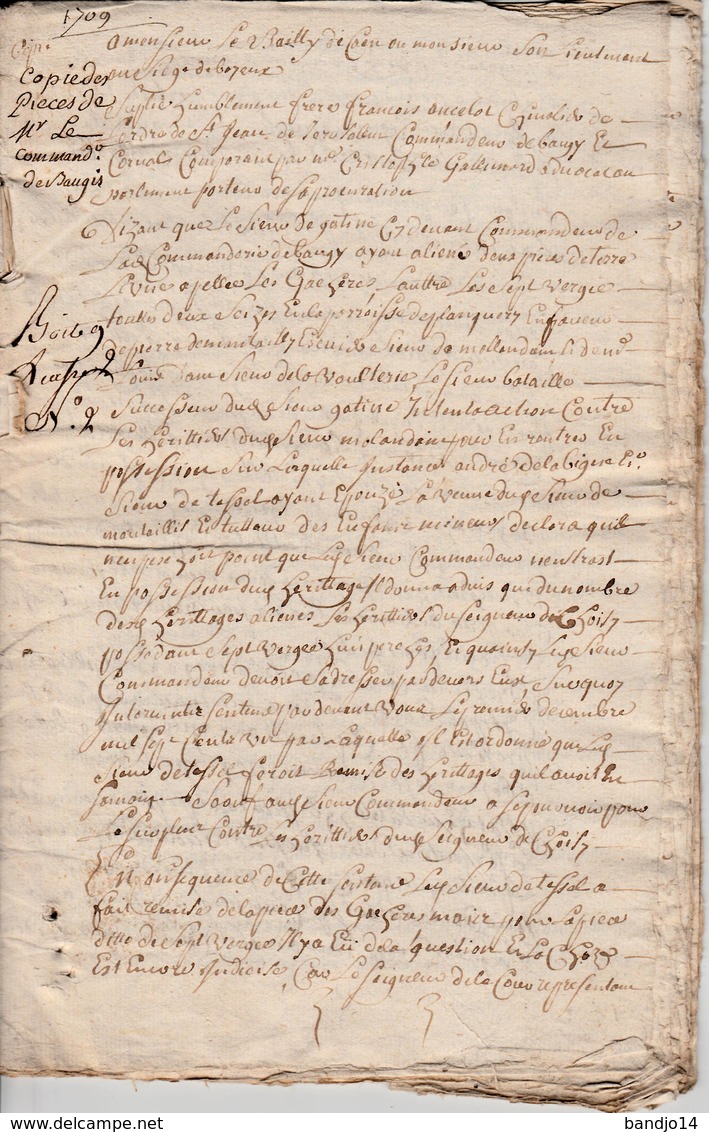 1709
Copie des
Pieces de
Mr Le
Command.r
de Baugis
Boite 9
Liasse 2
No. 2
A monsieur Le Bailly de Caen ou monsieur Son Lieutenant
au Siege de bayeux
Suplie humblement frere francois ancelot Chevalier de
Lordre de St Jean de Jerusalem Commandeur de baugy Et
Corval Comparant par me Cristophle Gallimard advocat au
parlement porteur de sa procuration
Dizant que Le Sieur de gatine Cy devant Commandeur de
La Commanderie de baugy ayant aliené deux pieces de terre
Lune apellee Les Gacheres Lauttre Les Sept Verges
touttes deux Scizes En la parroisse de planquery En faveur
de pierre de mantailly Escuier Sieur de mollandain
Sieur de la Voulterie Le Sieur bataille
Successeur dud Sieur gatine Intenta action Contre
Les herittiers dud Sieur molandain pour En rentrer En
possession Sur Laquelle Instance andré de la bigne Er
Sieur de tessel ayant Epouzé La Veuve dud Sieur de
mantaillis Et tutteur des Enfants mineurs declara quil
nempeschoit point que Led Sieur Commandeur nentrast
En possession dud herittage Il donna advis que du nombre
desd herittages alienes Les herittiers du Seigneur de Choisy
possedant Sept Verges
Commandeur devoit Sadresser par devers Eux Surquoy
Intervint Sentence par devant Vous Le premier decembre
mil Sept Cents par Laquelle Il Est ordonné que Led
Sieur de tessel feroit Remise des herittages quil avoit En
Sauf aud Sieur Commandeur a Se pourvoir pour
Le Surplus Contre Les herittiers dud Seigneur de Choisy
En Consequence de Cette Sentence Led Sieur de tessel a
fait remise de la piece des Gacheres mais pour La piece
ditte de Sept Verges Il y a Eu de la question Et La Choze
Est Encore Indecise Car Le Seigneur de la Cour representant
bandjo14